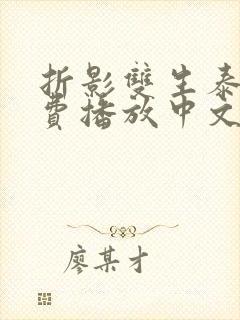 折影雙生泰
費播放中文
廖某才